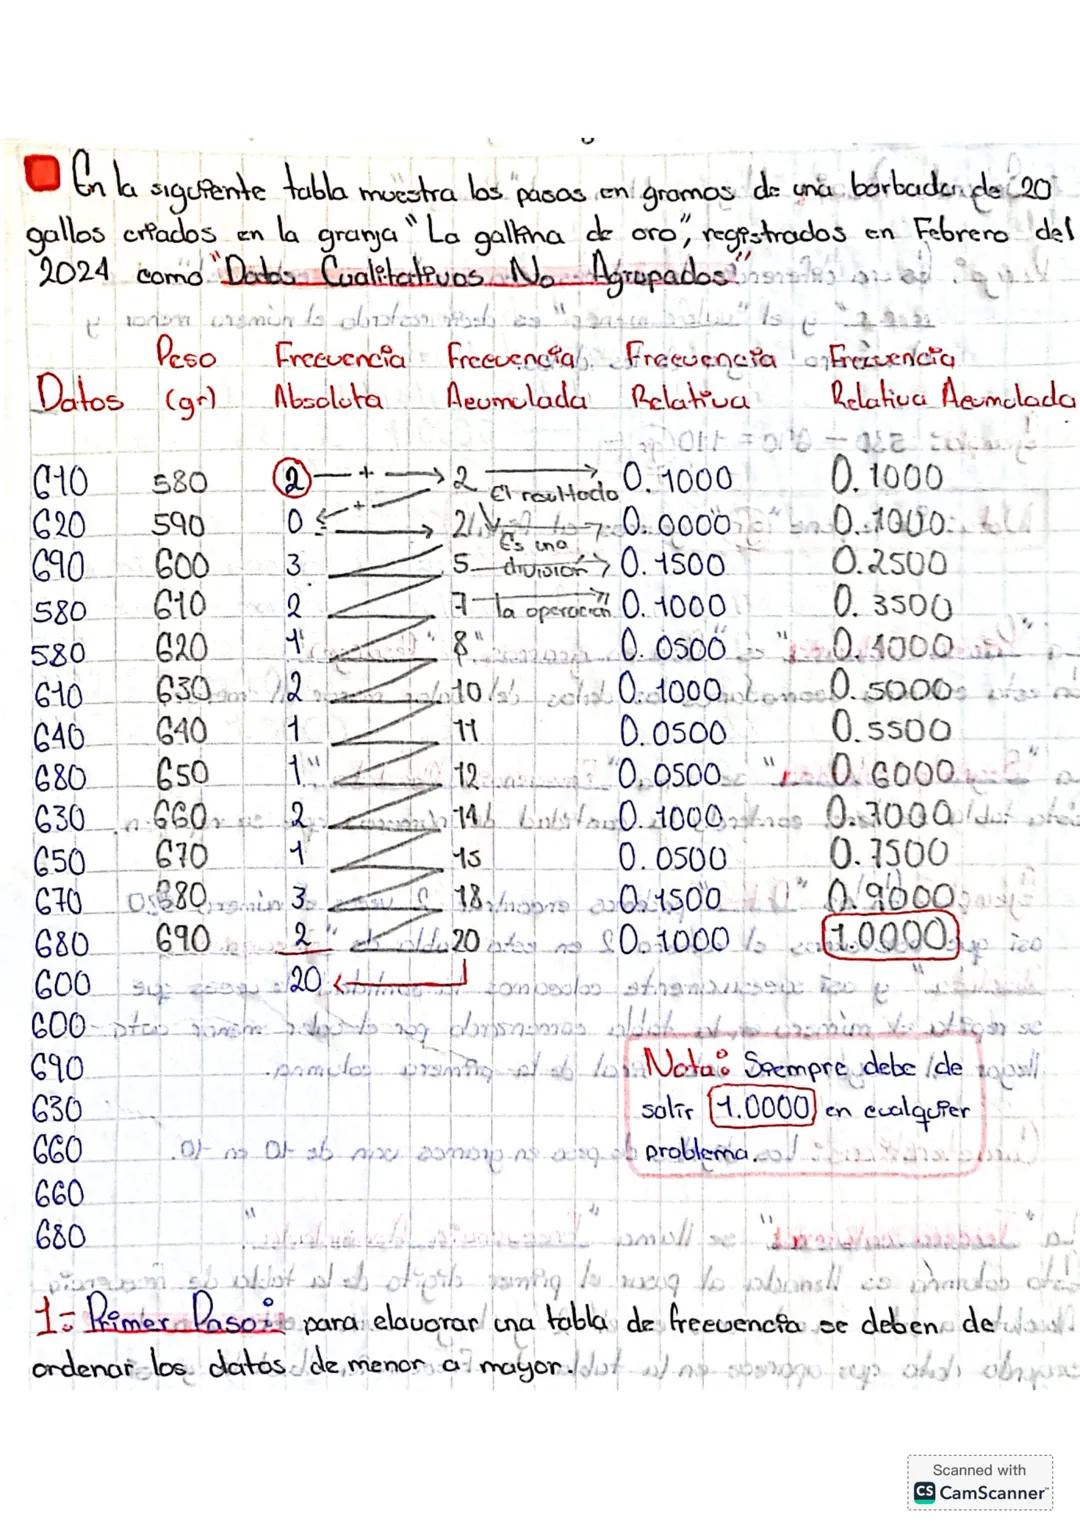 En la siguiente tabla muestra los pasos en gramos de una barbada de 20
gallos criados en la granja "La gallina de oro", registrados en Febrero del
2024 como "Datos Cualitativos No Agrupados"
Peso Frecuencia Frecuencia Frecuencia Frecuencia
Datos (gr) Absoluta Acumulada Relativa Relativa Acumulada
610 580 2 + 2 El resultado 0.1000 0.1000
620 590 0 + 2 Es una 0.0000 0.1000
690 600 3 5 división 0.1500 0.2500
580 610 2 7 la operación 0.1000 0.3500
580 620 1 8 0.0500 0.4000
610 630 2 10 0.1000 0.5000
640 640 1 11 0.0500 0.5500
680 650 1 12 0.0500 0.6000
630 660 2 14 0.1000 0.7000
650 670 1 15 0.0500 0.7500
670 680 3 18 0.1500 0.9000
680 690 2 20 0.1000 1.0000
600 20
600
690 Nota: Siempre debe de
630 salir 1.0000 en cualquier
660 problema.
660
680
1- Primer Paso: para elavorar una tabla de frecuencia se deben de
ordenar los datos de menor a mayor.
Scanned with
CS CamScanner